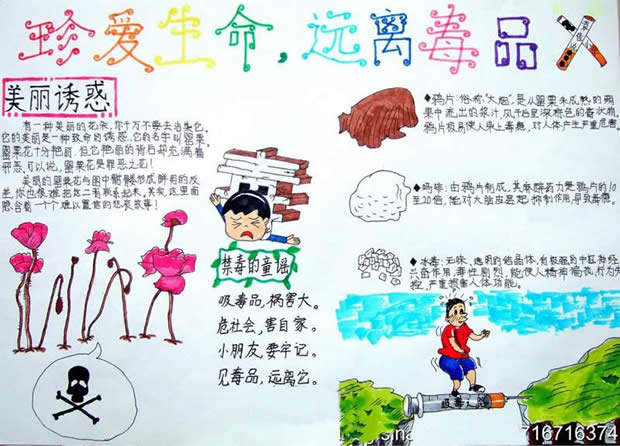 珍爱生命,远离毒品
美丽诱惑
有一种美丽的花朵,你千万不要去沾染它。
它的美丽是一种致命的诱惑,它的名字叫罂粟。
罂粟花十分艳丽,但它艳丽的背后却充满着
邪恶,可以说,罂粟花是罪恶之花!
美丽的罂粟花与图中骷髅形成鲜明的反
差,你也很难把这二者联系起来,其实,这里面
隐含着一个个难以置信的悲哀故事!
禁毒的童谣
吸毒品,祸害大。
危社会,害自家。
小朋友,要牢记。
见毒品,远离它。
◆鸦片:俗称"大烟",是从罂粟未成熟的蒴
果中流出的浆汁,风干后呈深棕色的膏状物。
鸦片极易使人染上毒瘾,对人体产生严重危害。
◆吗啡:由鸦片制成,其麻醉药力是鸦片的10
至20倍,能对大脑皮层起抑制作用,导致毒瘾。
◆冰毒:无味、透明的结晶体,有极强的中枢神经
兴奋作用,毒性剧烈,能使人精神偏执,行为失
控,严重损害人体功能。
吸毒
716716374